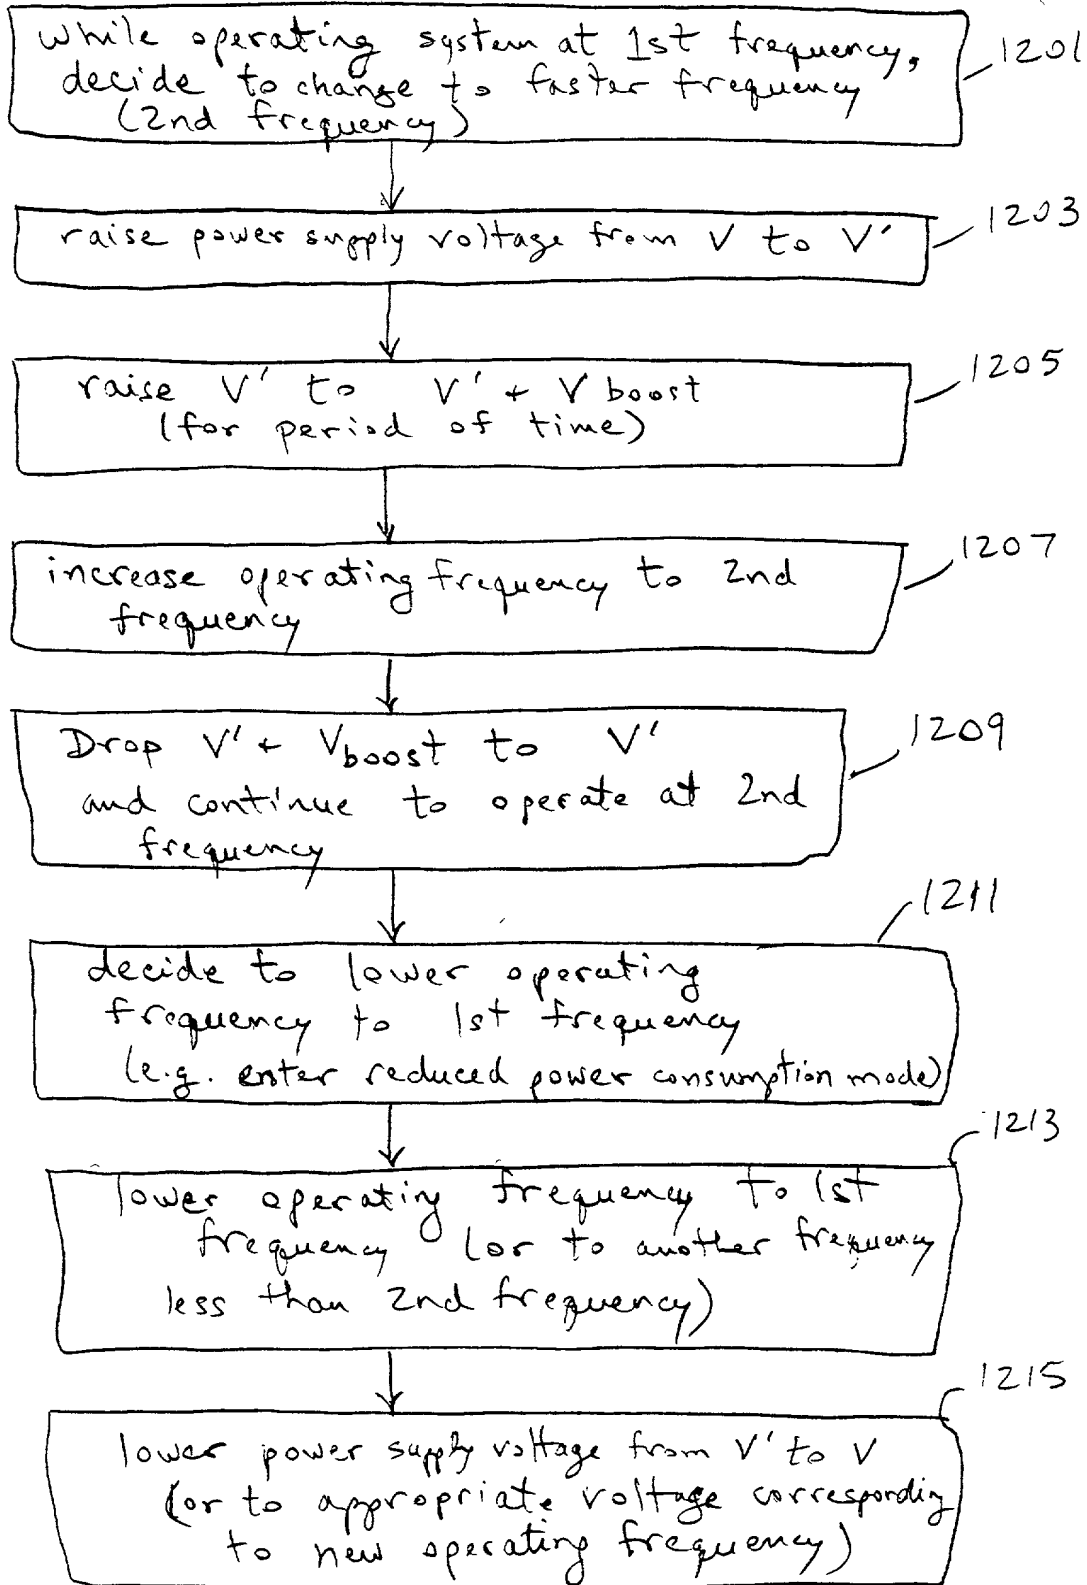 while operating system at 1st frequency,
decide to change to faster frequency
(2nd frequency)
1201
raise power supply voltage from V to V'
1203
raise V' to V' + V boost
(for period of time)
1205
increase operating frequency to 2nd
frequency
1207
Drop V' + Vboost to V'
and continue to operate at 2nd
frequency
1209
decide to lower operating
frequency to 1st frequency
(e.g. enter reduced power consumption mode)
1211
lower operating frequency to 1st
frequency (or to another frequency
less than 2nd frequency)
1213
lower power supply voltage from V' to V
(or to appropriate voltage corresponding
to new operating frequency)
1215